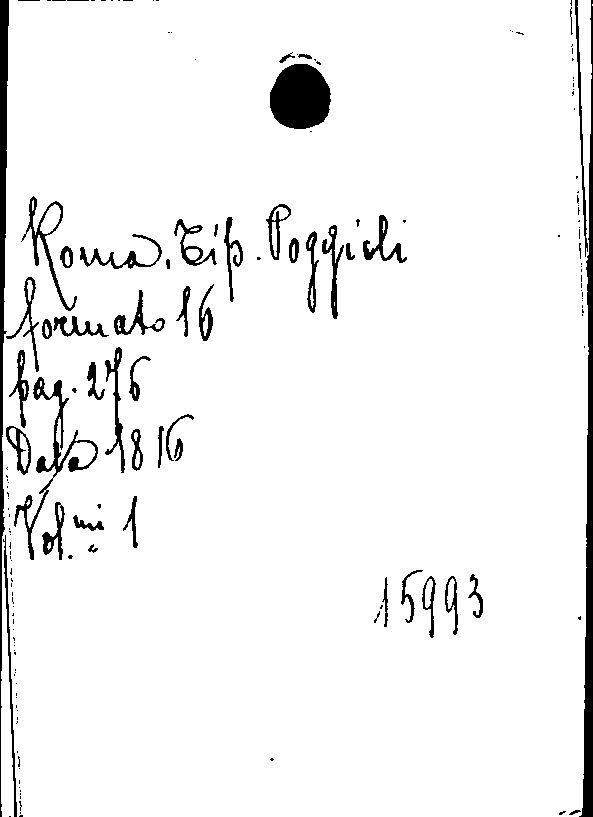 Roma. Tip. Poggioli
formato 16
pag. 276
Data 1816
Vol.mi 1
15993